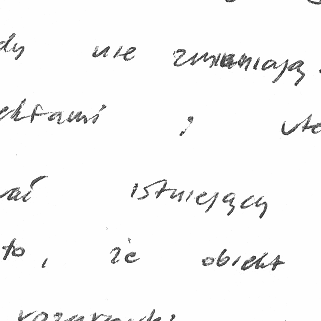 dy nie zmieniają
ektami i
ać istniejący
to, że obiekt